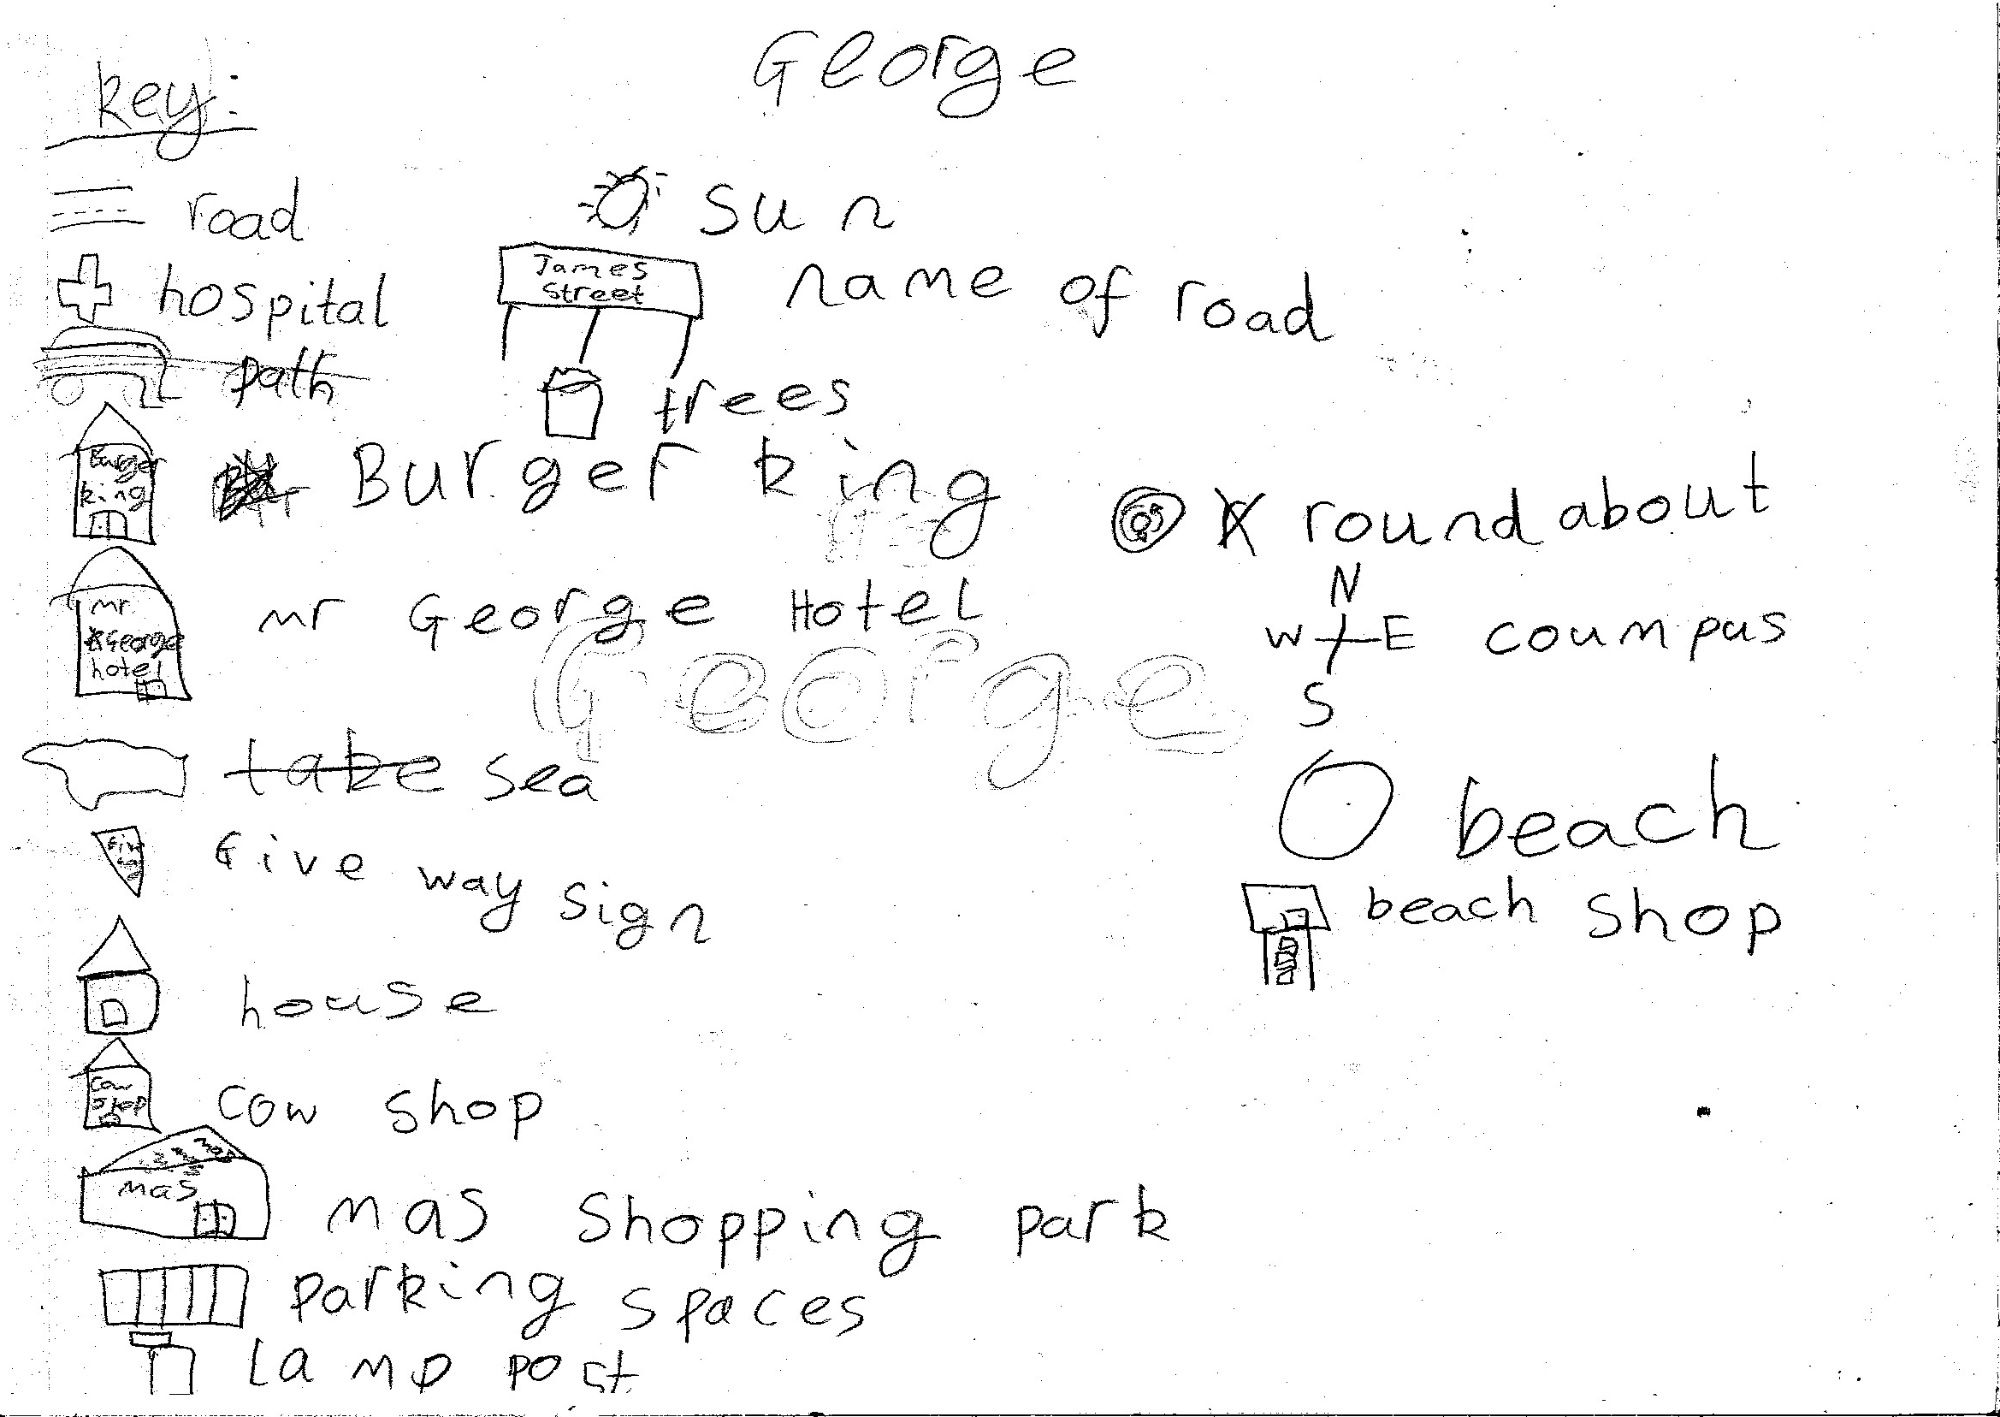 George
key:
road
sun
hospital
James
Street
name of road
path
trees
Burger
king
Burger king
roundabout
mr
George
hotel
mr George Hotel
N
W E
S
coumpus
George
take sea
beach
Give way sign
beach shop
house
Cow
shop
cow shop
mas
mas shopping park
parking spaces
lamp post